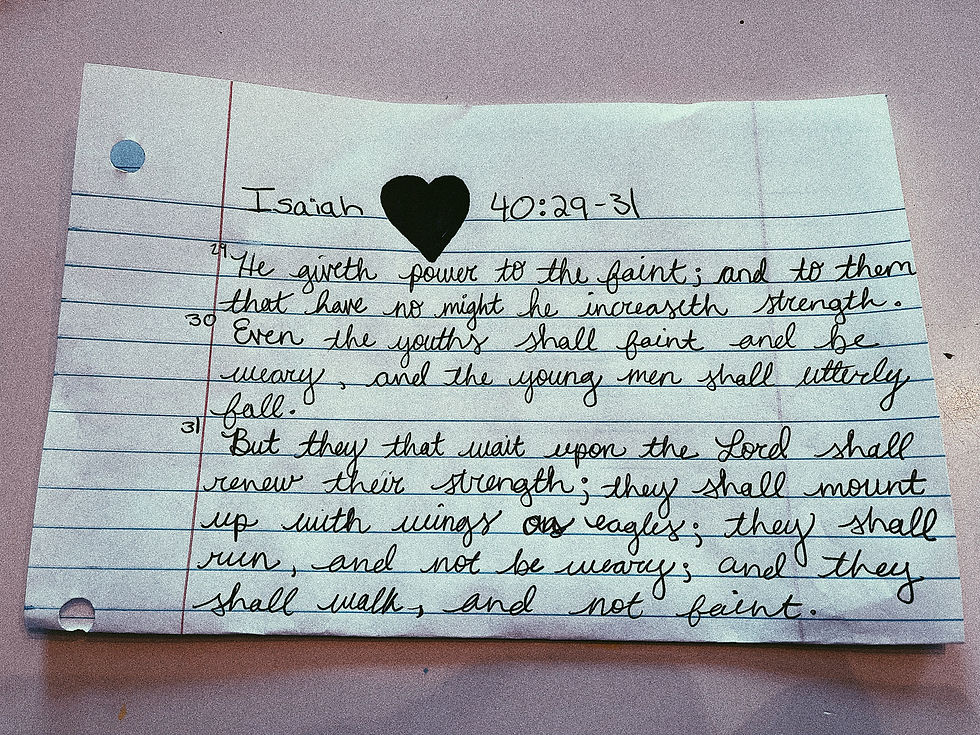 Isaiah 40:29-31
29 He giveth power to the faint; and to them
that have no might he increaseth strength.
30 Even the youths shall faint and be
weary, and the young men shall utterly
fall.
31 But they that wait upon the Lord shall
renew their strength; they shall mount
up with wings as eagles; they shall
run, and not be weary; and they
shall walk, and not faint.